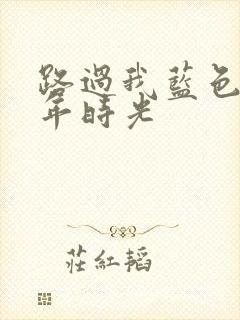 路過我藍色
年時光
莊紅韜